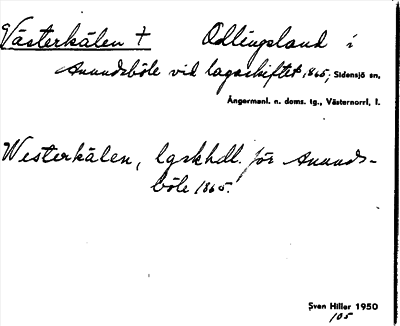 Västerkälen † Odlingsland i
Anundsböle vid lagaskiftet 1865; Sidensjö sn,
Ångermanl. n. doms. tg., Västernorrl, l.
Westerkälen, lgskhdl. för Anunds-
böle 1865.
Sven Hiller 1950
105